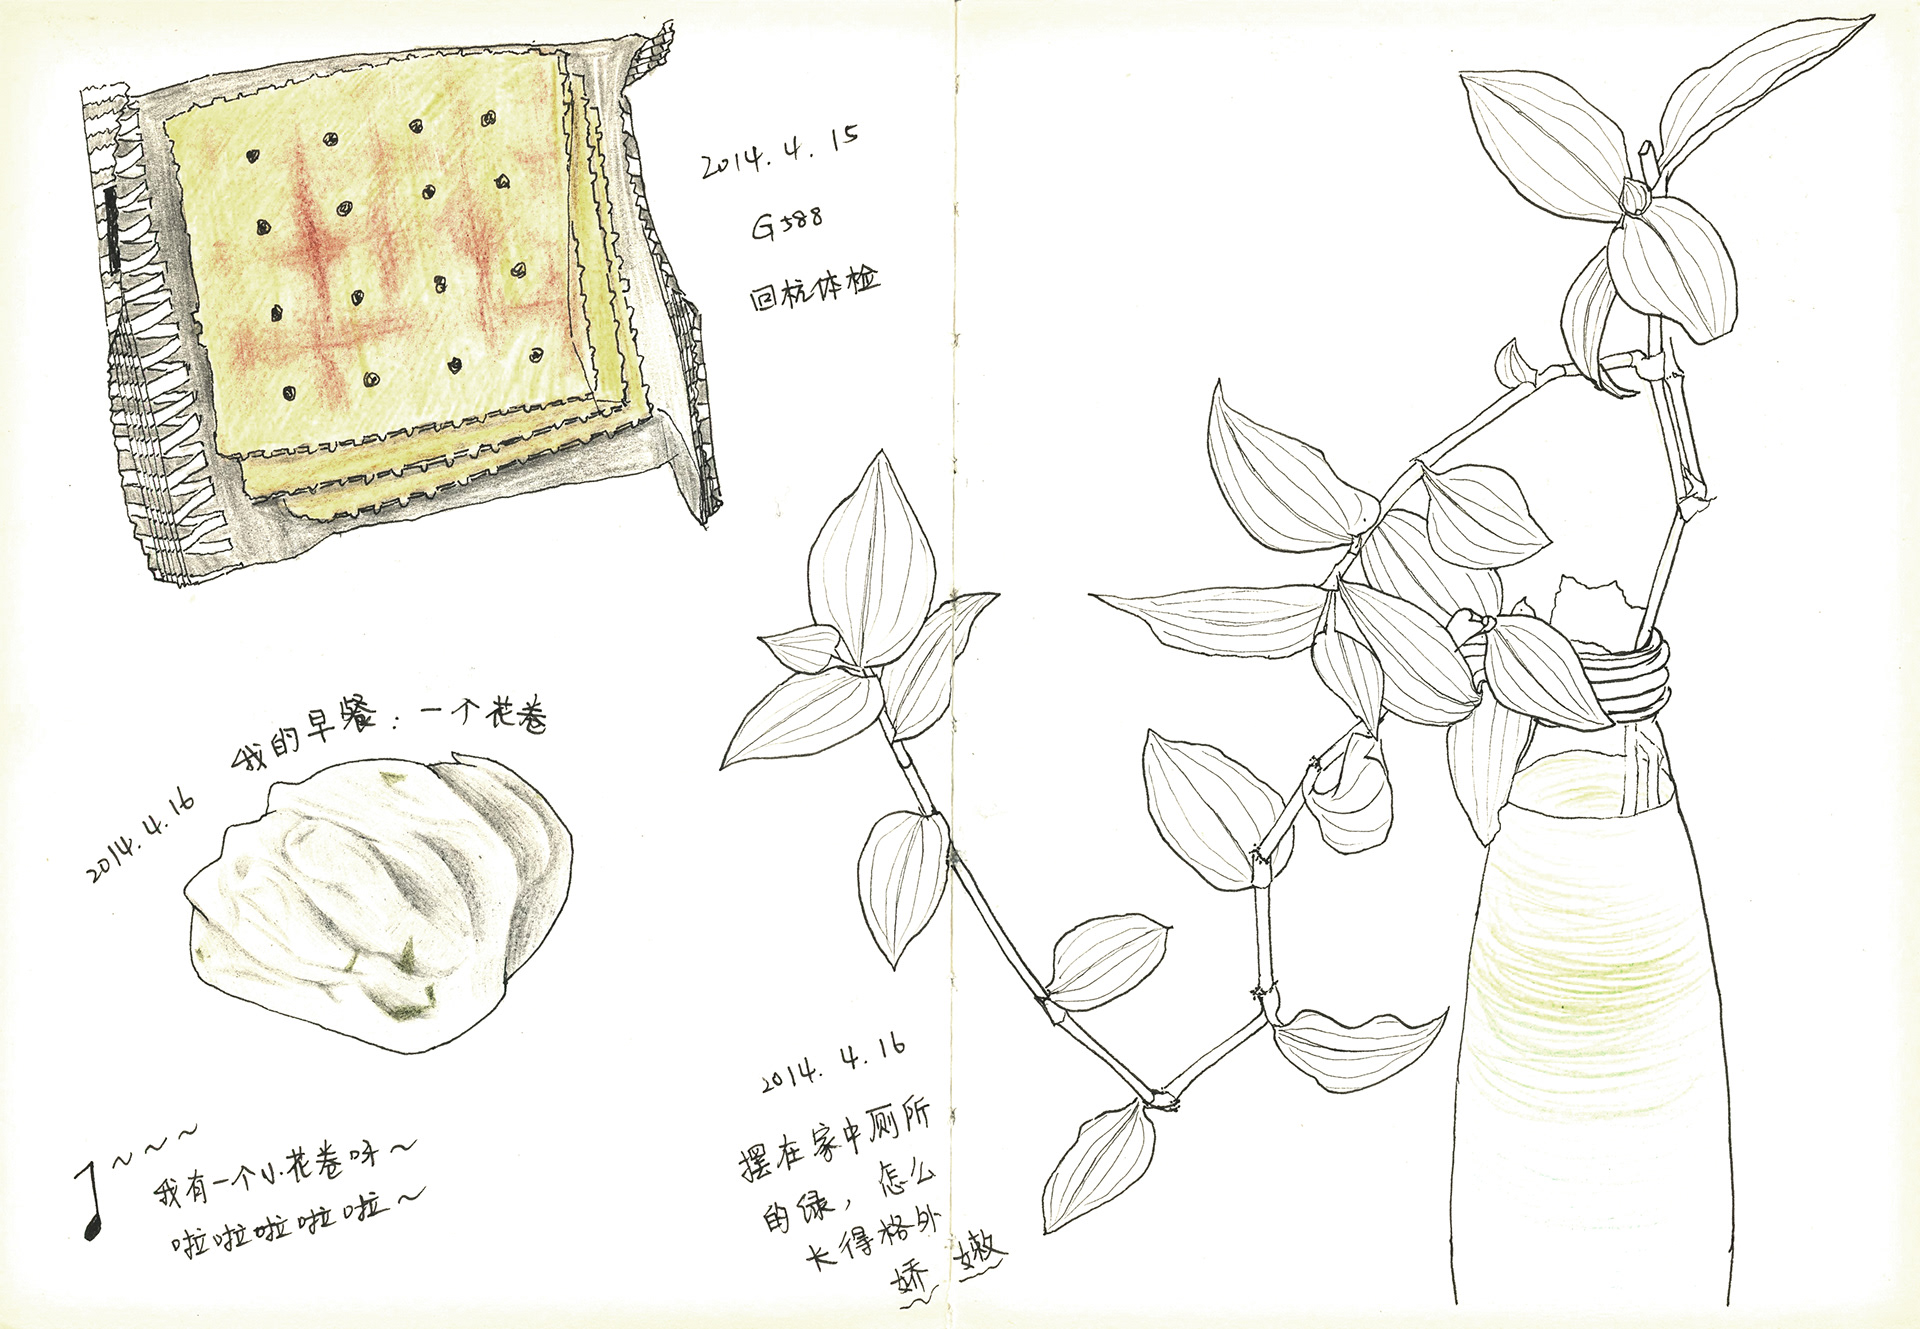 2014.4.15
G588
回杭体检
我的早餐：一个花卷
2014.4.16
♪~~~
我有一个小花卷呀~
啦啦啦啦啦~
2014.4.16
摆在家中厕所
的绿，怎么
长得格外
娇嫩